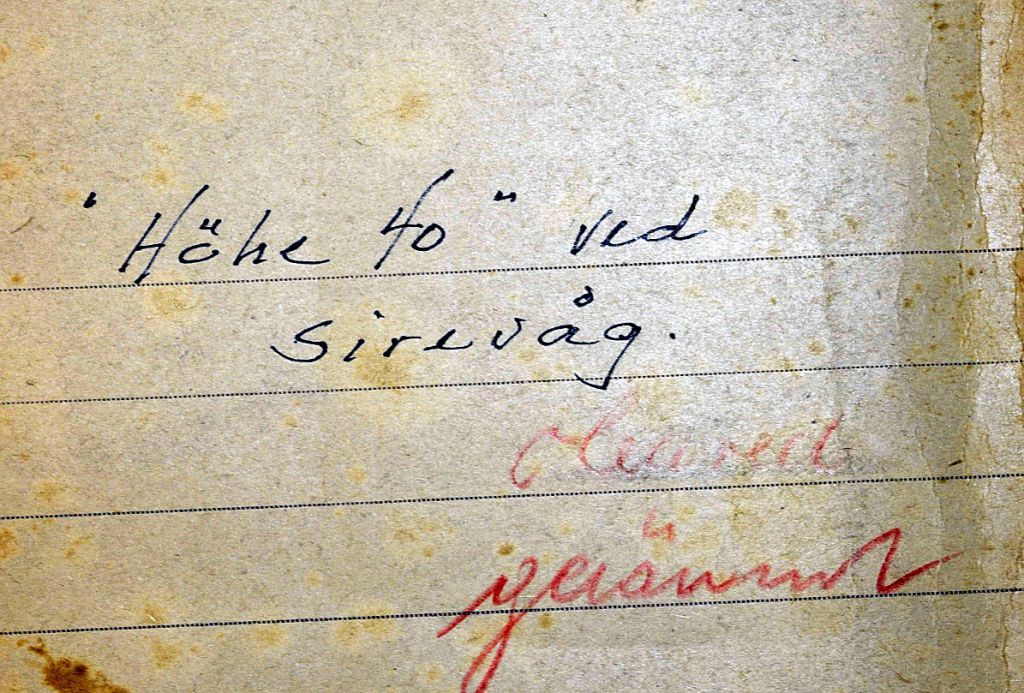 "Höhe 40" ved
Sirevåg.
Cleared
geräumt